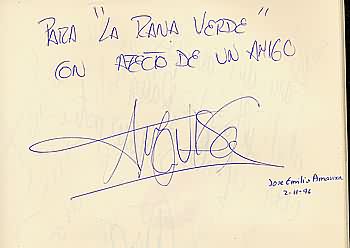 PARA "LA RANA VERDE"
CON AFECTO DE UN AMIGO
José Emilio Amavisca
2-11-96